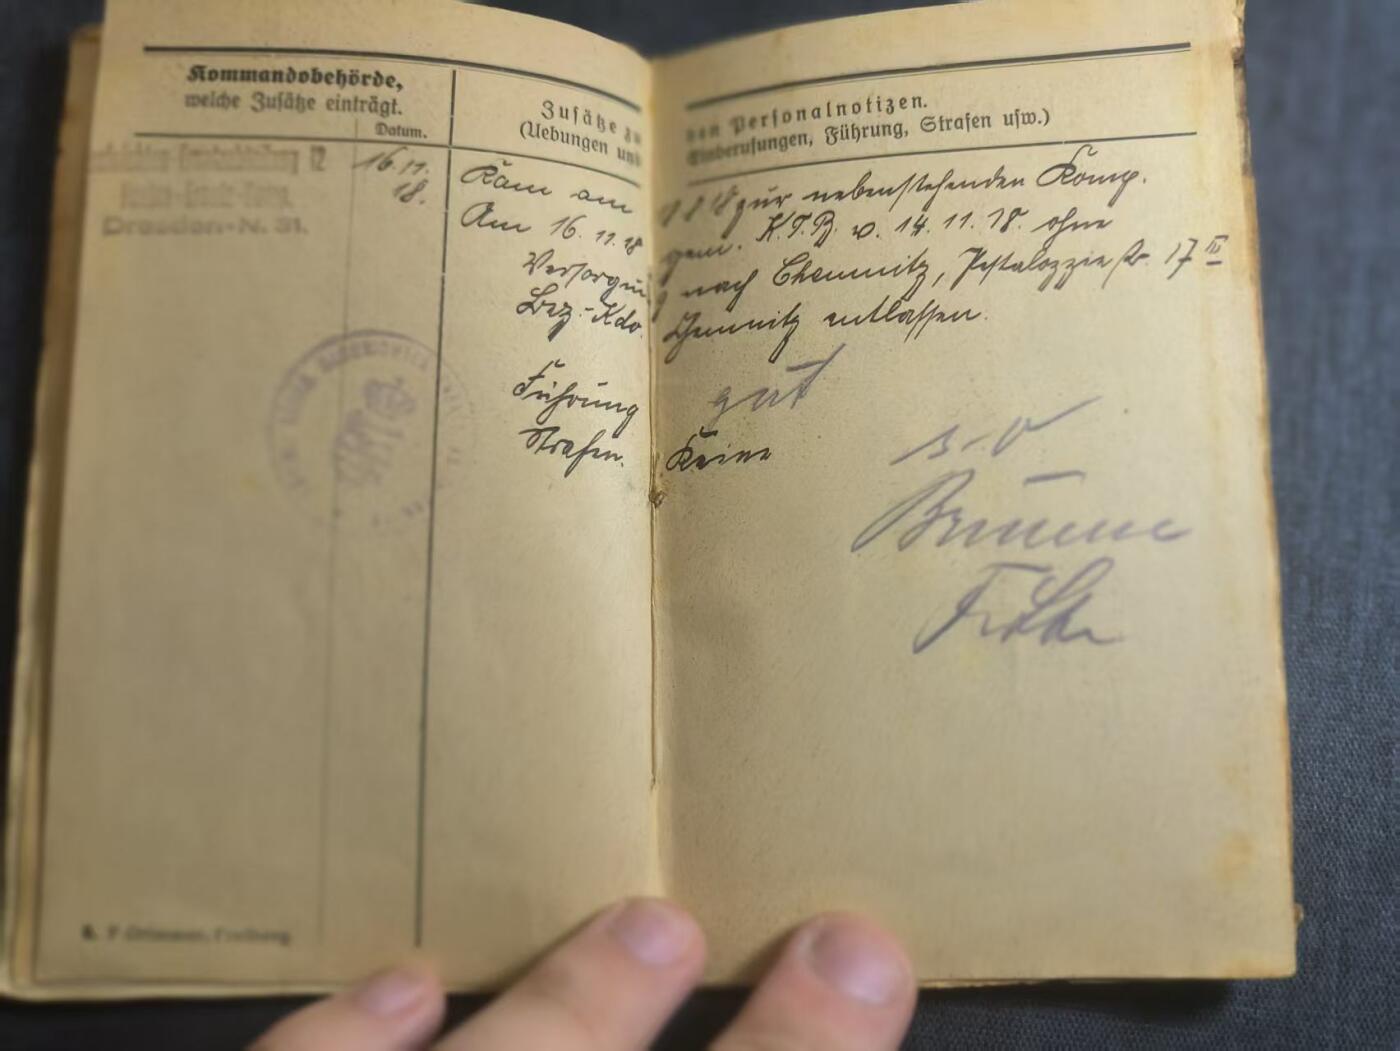 Kommandobehörde,
welche Zusätze einträgt.
Datum.
Zusätze zu den Personalnotizen.
(Uebungen und Einberufungen, Führung, Strafen usw.)
12
Dresden-N. 31.
16.11.
18.
Kam am 18 zur nebenstehenden Komp.
Am 16.11.18 gem. K.T.B. v. 14.11.18. ohne
Versorgung nach Chemnitz, Pestalozzistr. 17 III
Bez.-Kdo. Chemnitz entlassen.
Führung gut
Strafen. Keine
Freiberg